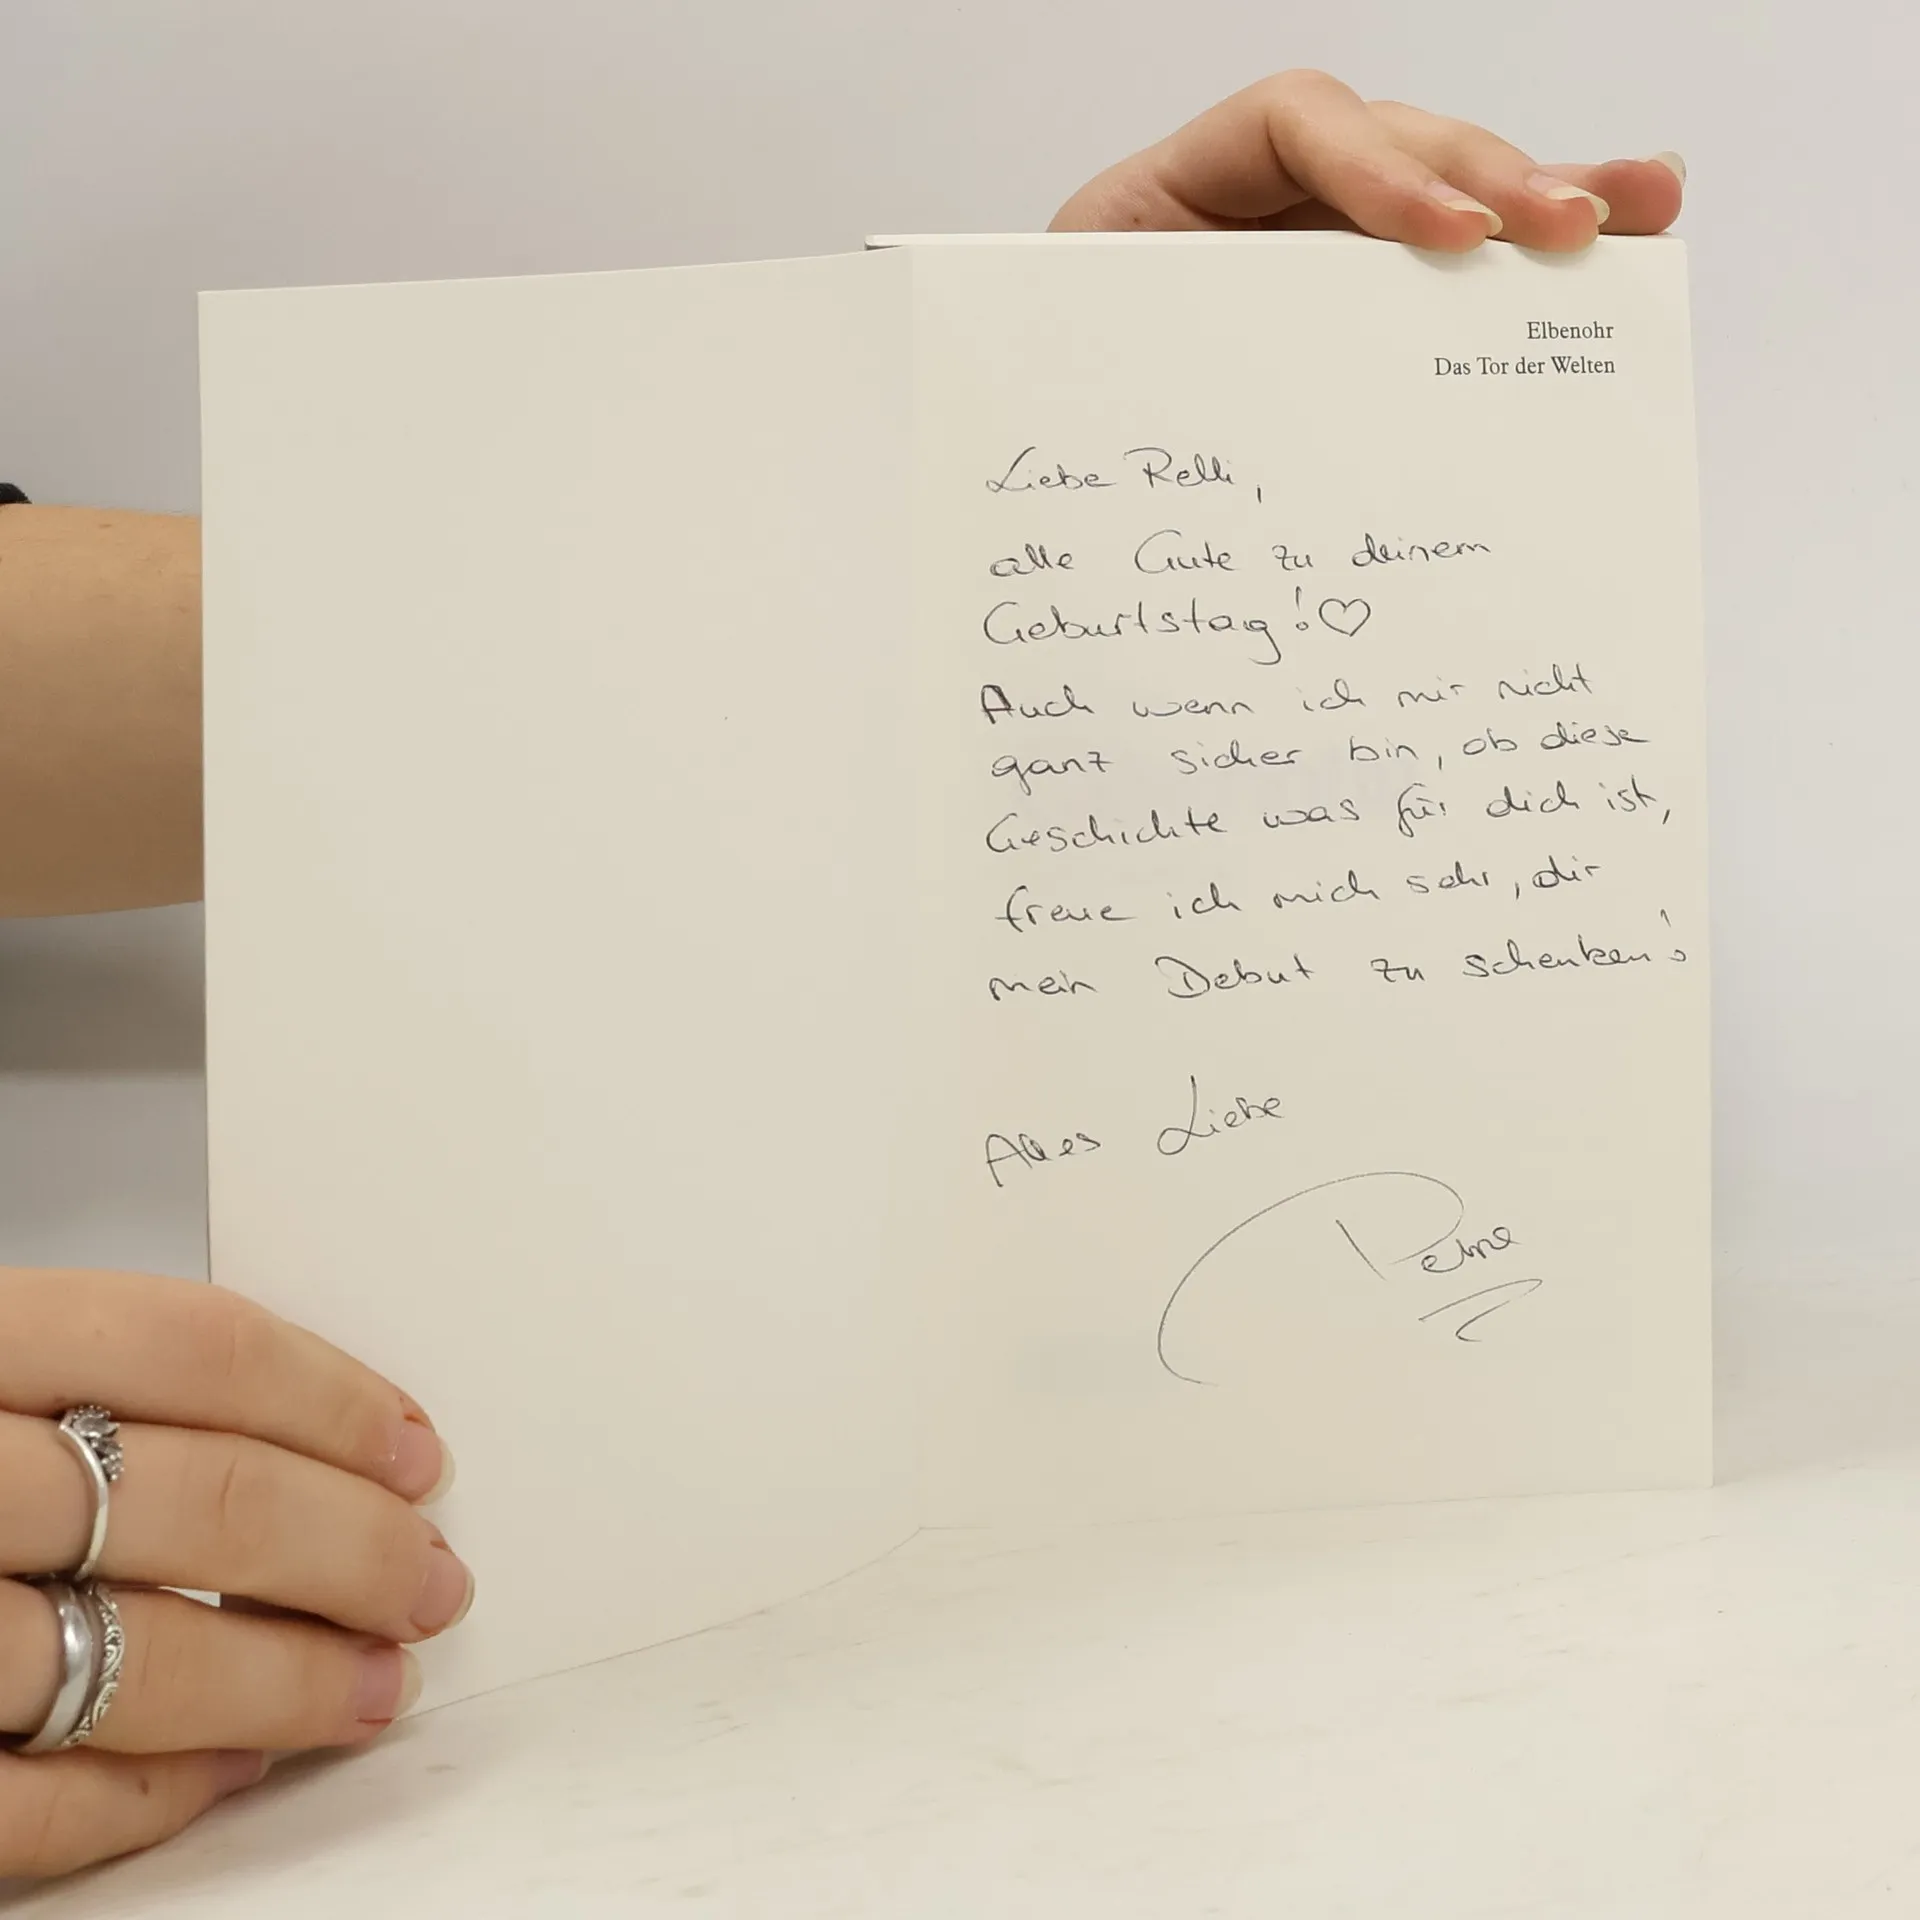 Elbenohr
Das Tor der Welten
Liebe Relli,
alle Gute zu deinem
Geburtstag!♡
Auch wenn ich mir nicht
ganz sicher bin, ob diese
Geschichte was für dich ist,
freue ich mich sehr, dir
mein Debut zu schenken!
Alles Liebe